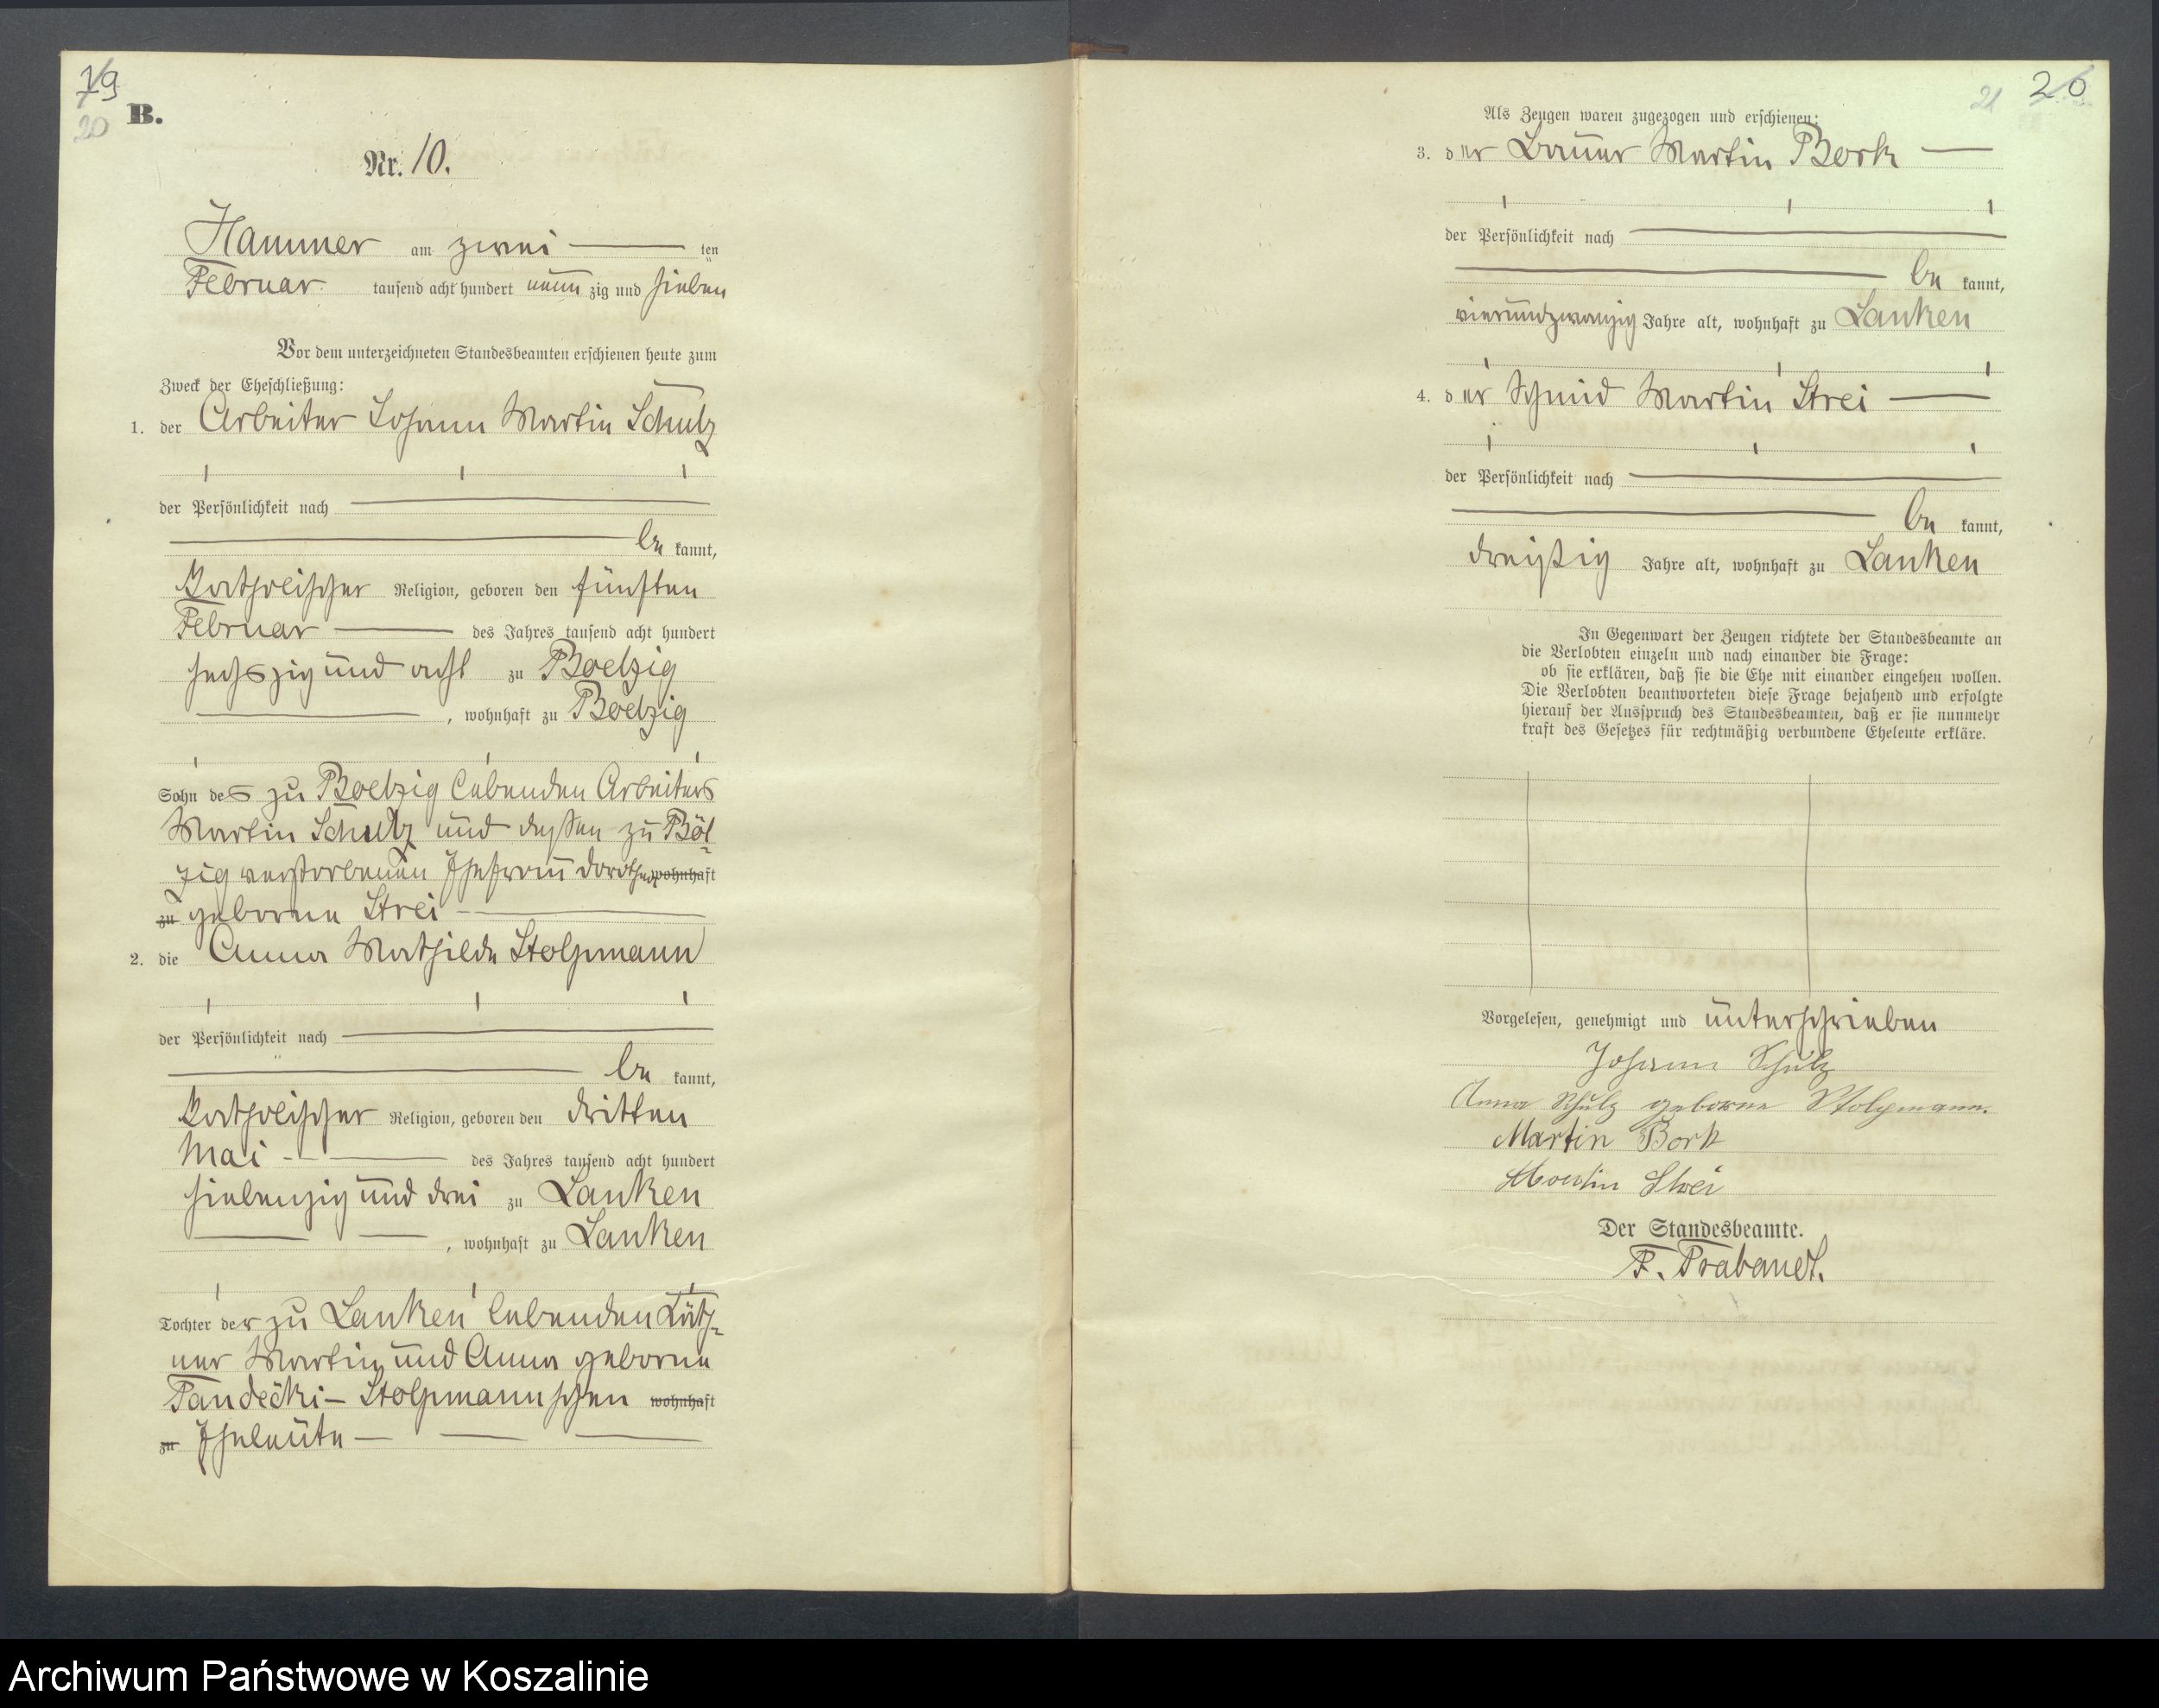 19
20
B.
Nr. 10.
Hammer am zwei ten
Februar tausend acht hundert neun zig und sieben
Vor dem unterzeichneten Standesbeamten erschienen heute zum
Zweck der Eheschließung:
1. der Arbeiter Johann Martin Schulz
der Persönlichkeit nach
be kannt,
katholischer Religion, geboren den fünften
Februar des Jahres tausend acht hundert
sechszig und acht zu Boelzig
, wohnhaft zu Boelzig
Sohn des zu Boelzig lebenden Arbeiters
Martin Schulz und dessen zu Böl-
zig verstorbenen Ehefrau Dorothea wohnhaft
zu geborne Strei
2. die Anna Mathilde Stolpmann
der Persönlichkeit nach
be kannt,
katholischer Religion, geboren den dritten
Mai des Jahres tausend acht hundert
siebenzig und drei zu Lanken
, wohnhaft zu Lanken
Tochter der zu Lanken lebenden Käth-
ner Martin und Anna geborne
Pandecki - Stolpmannschen wohnhaft
zu Eheleute
21 20
Als Zeugen waren zugezogen und erschienen:
3. der Bauer Martin Bork
der Persönlichkeit nach
be kannt,
vierundzwanzig Jahre alt, wohnhaft zu Lanken
4. der Schmid Martin Strei
der Persönlichkeit nach
be kannt,
dreißig Jahre alt, wohnhaft zu Lanken
In Gegenwart der Zeugen richtete der Standesbeamte an
die Verlobten einzeln und nach einander die Frage:
ob sie erklären, daß sie die Ehe mit einander eingehen wollen.
Die Verlobten beantworteten diese Frage bejahend und erfolgte
hierauf der Ausspruch des Standesbeamten, daß er sie nunmehr
kraft des Gesetzes für rechtmäßig verbundene Eheleute erkläre.
Vorgelesen, genehmigt und unterschrieben
Johann Schulz
Anna Schulz geborne Stolpmann.
Martin Bork
Martin Strei
Der Standesbeamte.
F. Prabandt.
Archiwum Państwowe w Koszalinie